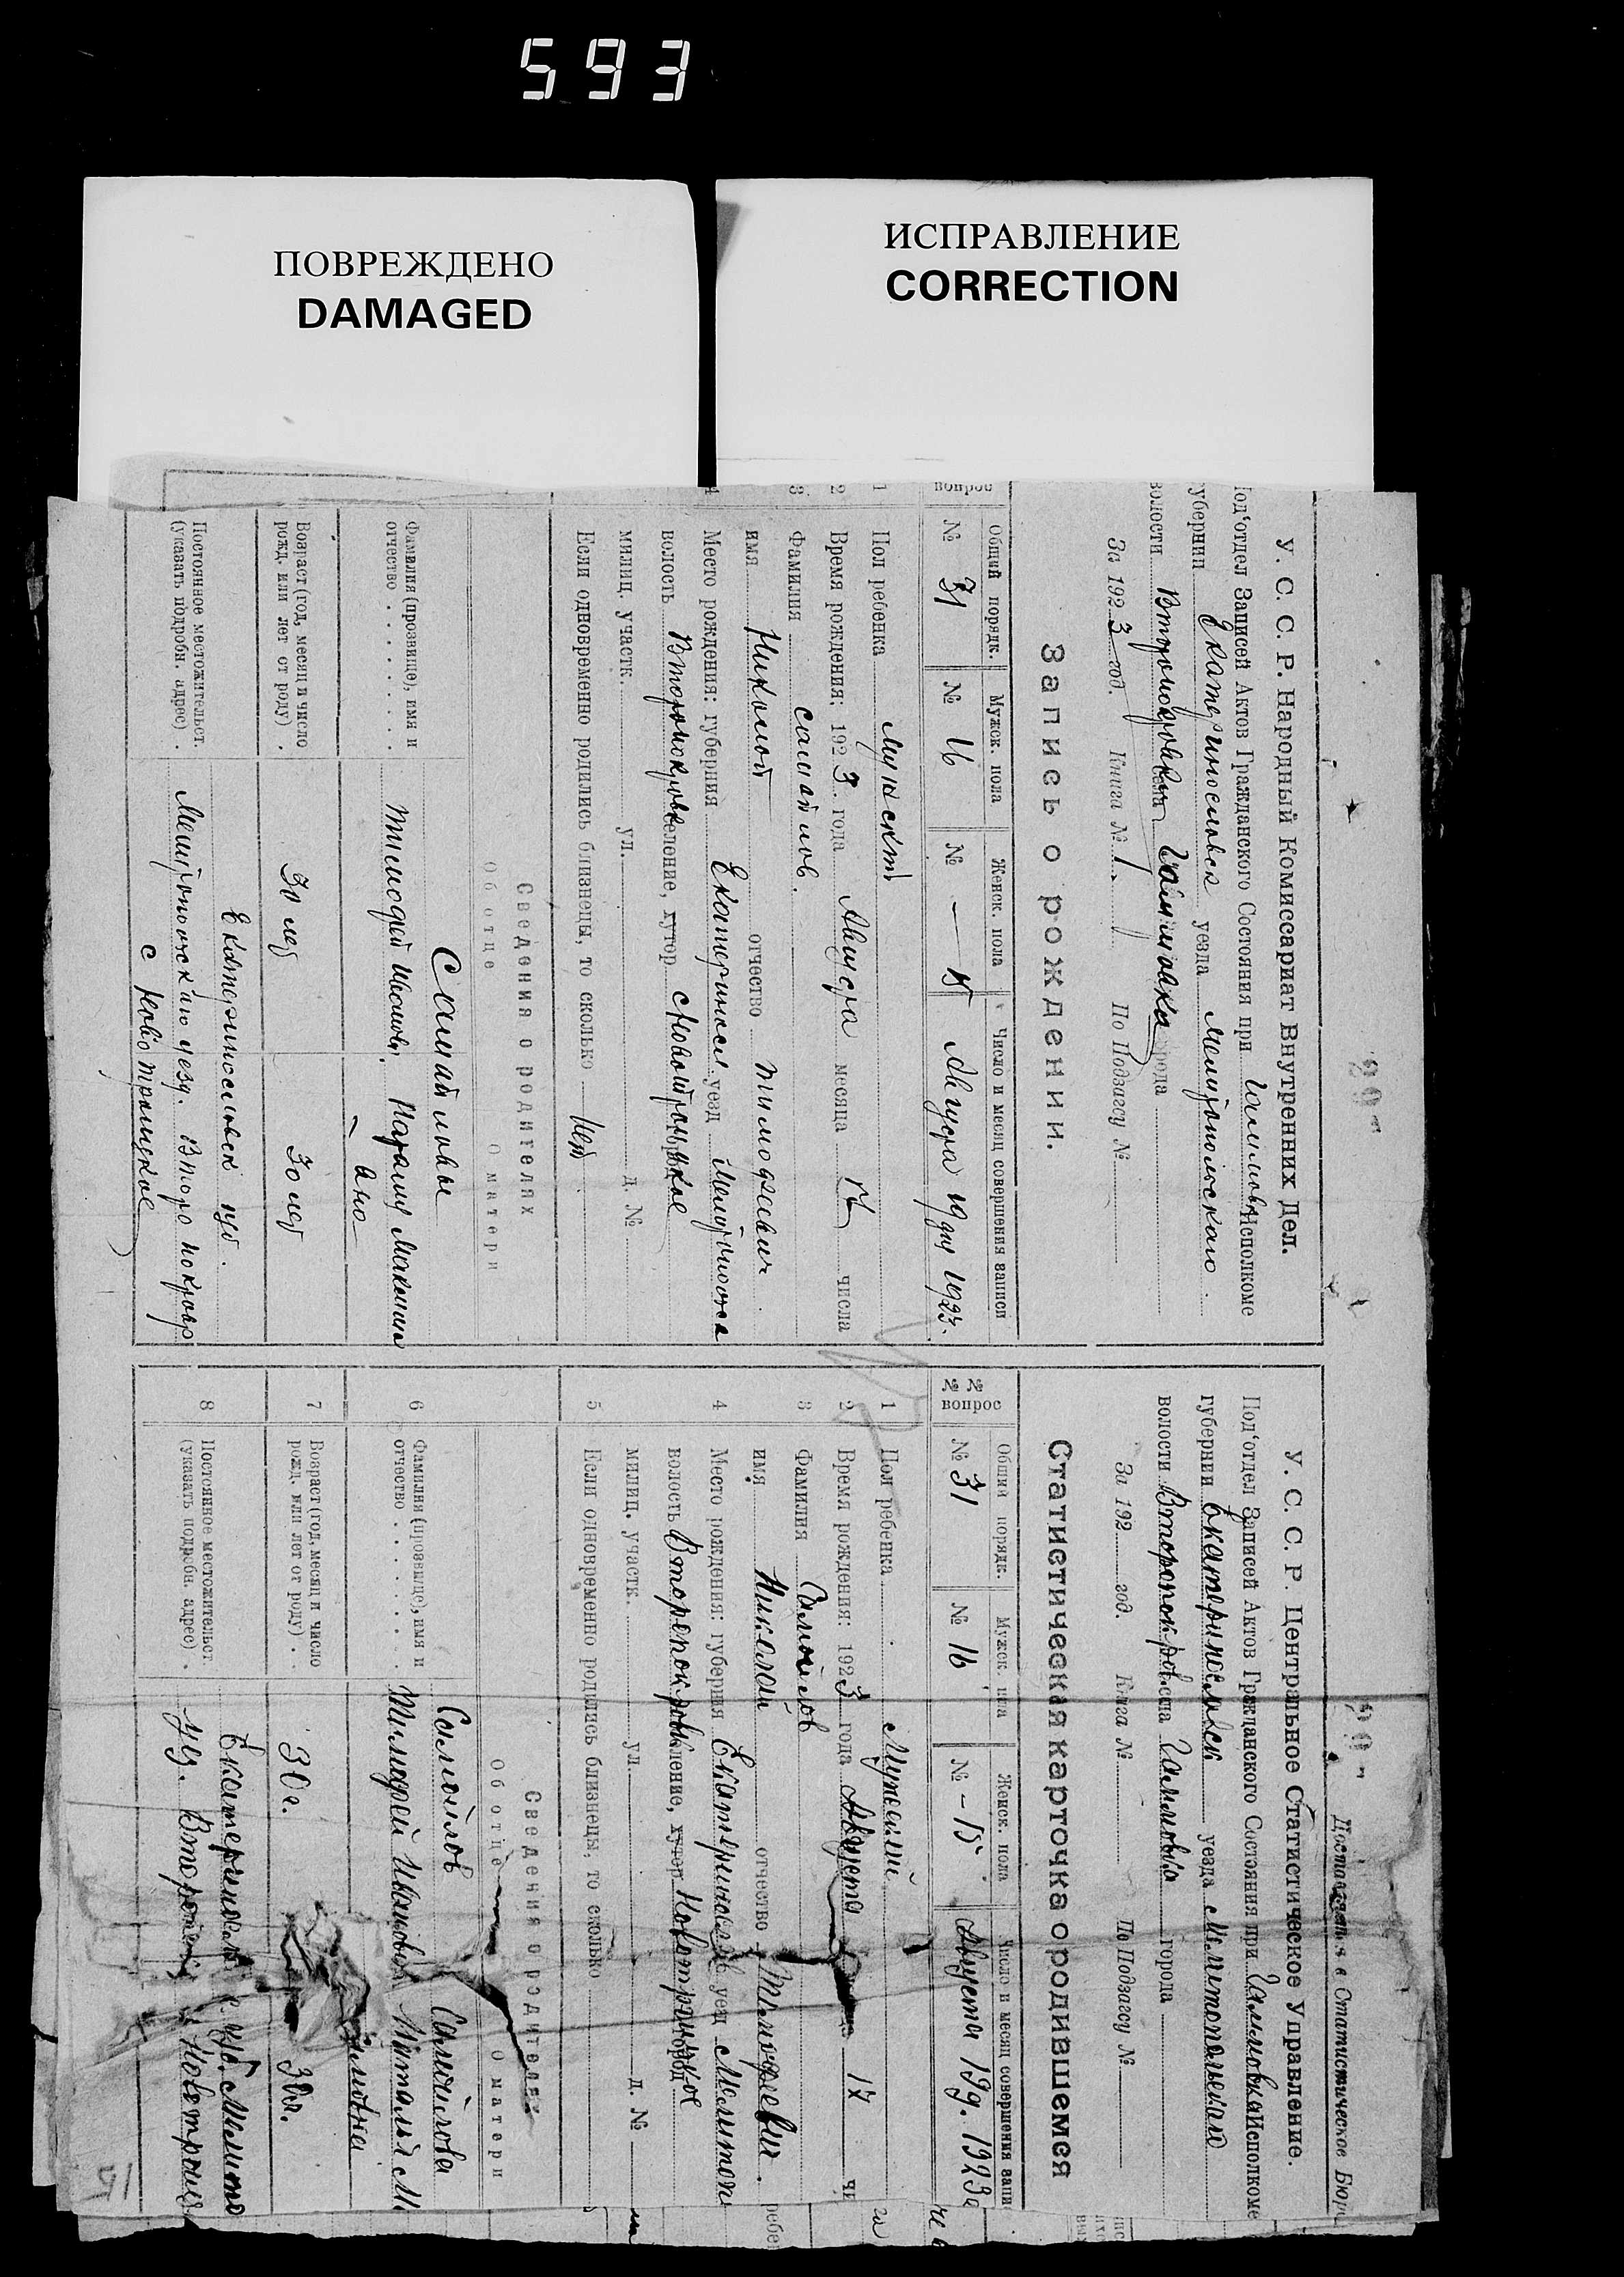 593
ПОВРЕЖДЕНО
DAMAGED
ИСПРАВЛЕНИЕ
CORRECTION
У. С. С. Р. Народный Комиссариат Внутренних Дел.
Под'отдел Записей Актов Гражданского Состояния при Исполкоме
губернии Екатеринославск уезда Мелитопольскаго
волости села города
За 1923 год. Книга № 1 По Подзагсу №
Запись о рождении.
вопрос
Общий порядк.
Мужск. пола
Женск. пола
Число и месяц совершения записи
№ 31
№ 16
№ — 15
Августа 19 дня 1923.
1 Пол ребенка мужской
2 Время рождения: 1923 года Августа месяца 17 числа
3 Фамилия Самойлов.
имя Николай отчество Тимофеевич
4 Место рождения: губерния Екатеринослав уезд
волость селение, хутор Новотроицкое город
милиц. участк. ул. д. №
Если одновременно родились близнецы, то сколько Нет
Сведения о родителях
Об отце
О матери
Фамилия (прозвище), имя и отчество
Самойловы
Тимофей Иванов.
Возраст (год, месяц и число рожд. или лет от роду)
30 лет
30 лет
Постоянное местожительст. (указать подробн. адрес)
Екатеринославск губ.
Мелитопольскаго уезд. Второпокров
с Новотроицкое
Доставляется в Статистическое Бюро
У. С. С. Р. Центральное Статистическое Управление.
Под'отдел Записей Актов Гражданского Состояния при Исполкоме
губернии Екатеринославск уезда Мелитопольской
волости Второпокров села города
За 192 год. Книга № По Подзагсу №
Статистическая карточка о родившемся
№ № вопрос
Общий порядк.
Мужск. пола
Женск. пола
Число и месяц совершения запи
№ 31
№ 16
№ – 15
Августа 19д. 1923г
1 Пол ребенка Мужской
2 Время рождения: 1923 года Августа 17
3 Фамилия Самойлов
имя Николай отчество Тимофеевич.
4 Место рождения: губерния Екатеринослав уезд Мелитопо
волость Второпокров селение, хутор Новотроицкое город
милиц. участк. ул. д. №
5 Если одновременно родились близнецы, то сколько
Сведения о родителях
Об отце
О матери
6 Фамилия (прозвище), имя и отчество
Самойлов
Тимофей Иванов
Самойлова
Наталья М
7 Возраст (год, месяц и число рожд. или лет от роду)
30 г.
30г.
8 Постоянное местожительст. (указать подробн. адрес)
Екатеринослав губ. Мелито
уез. Второпок с Новотроиц
15